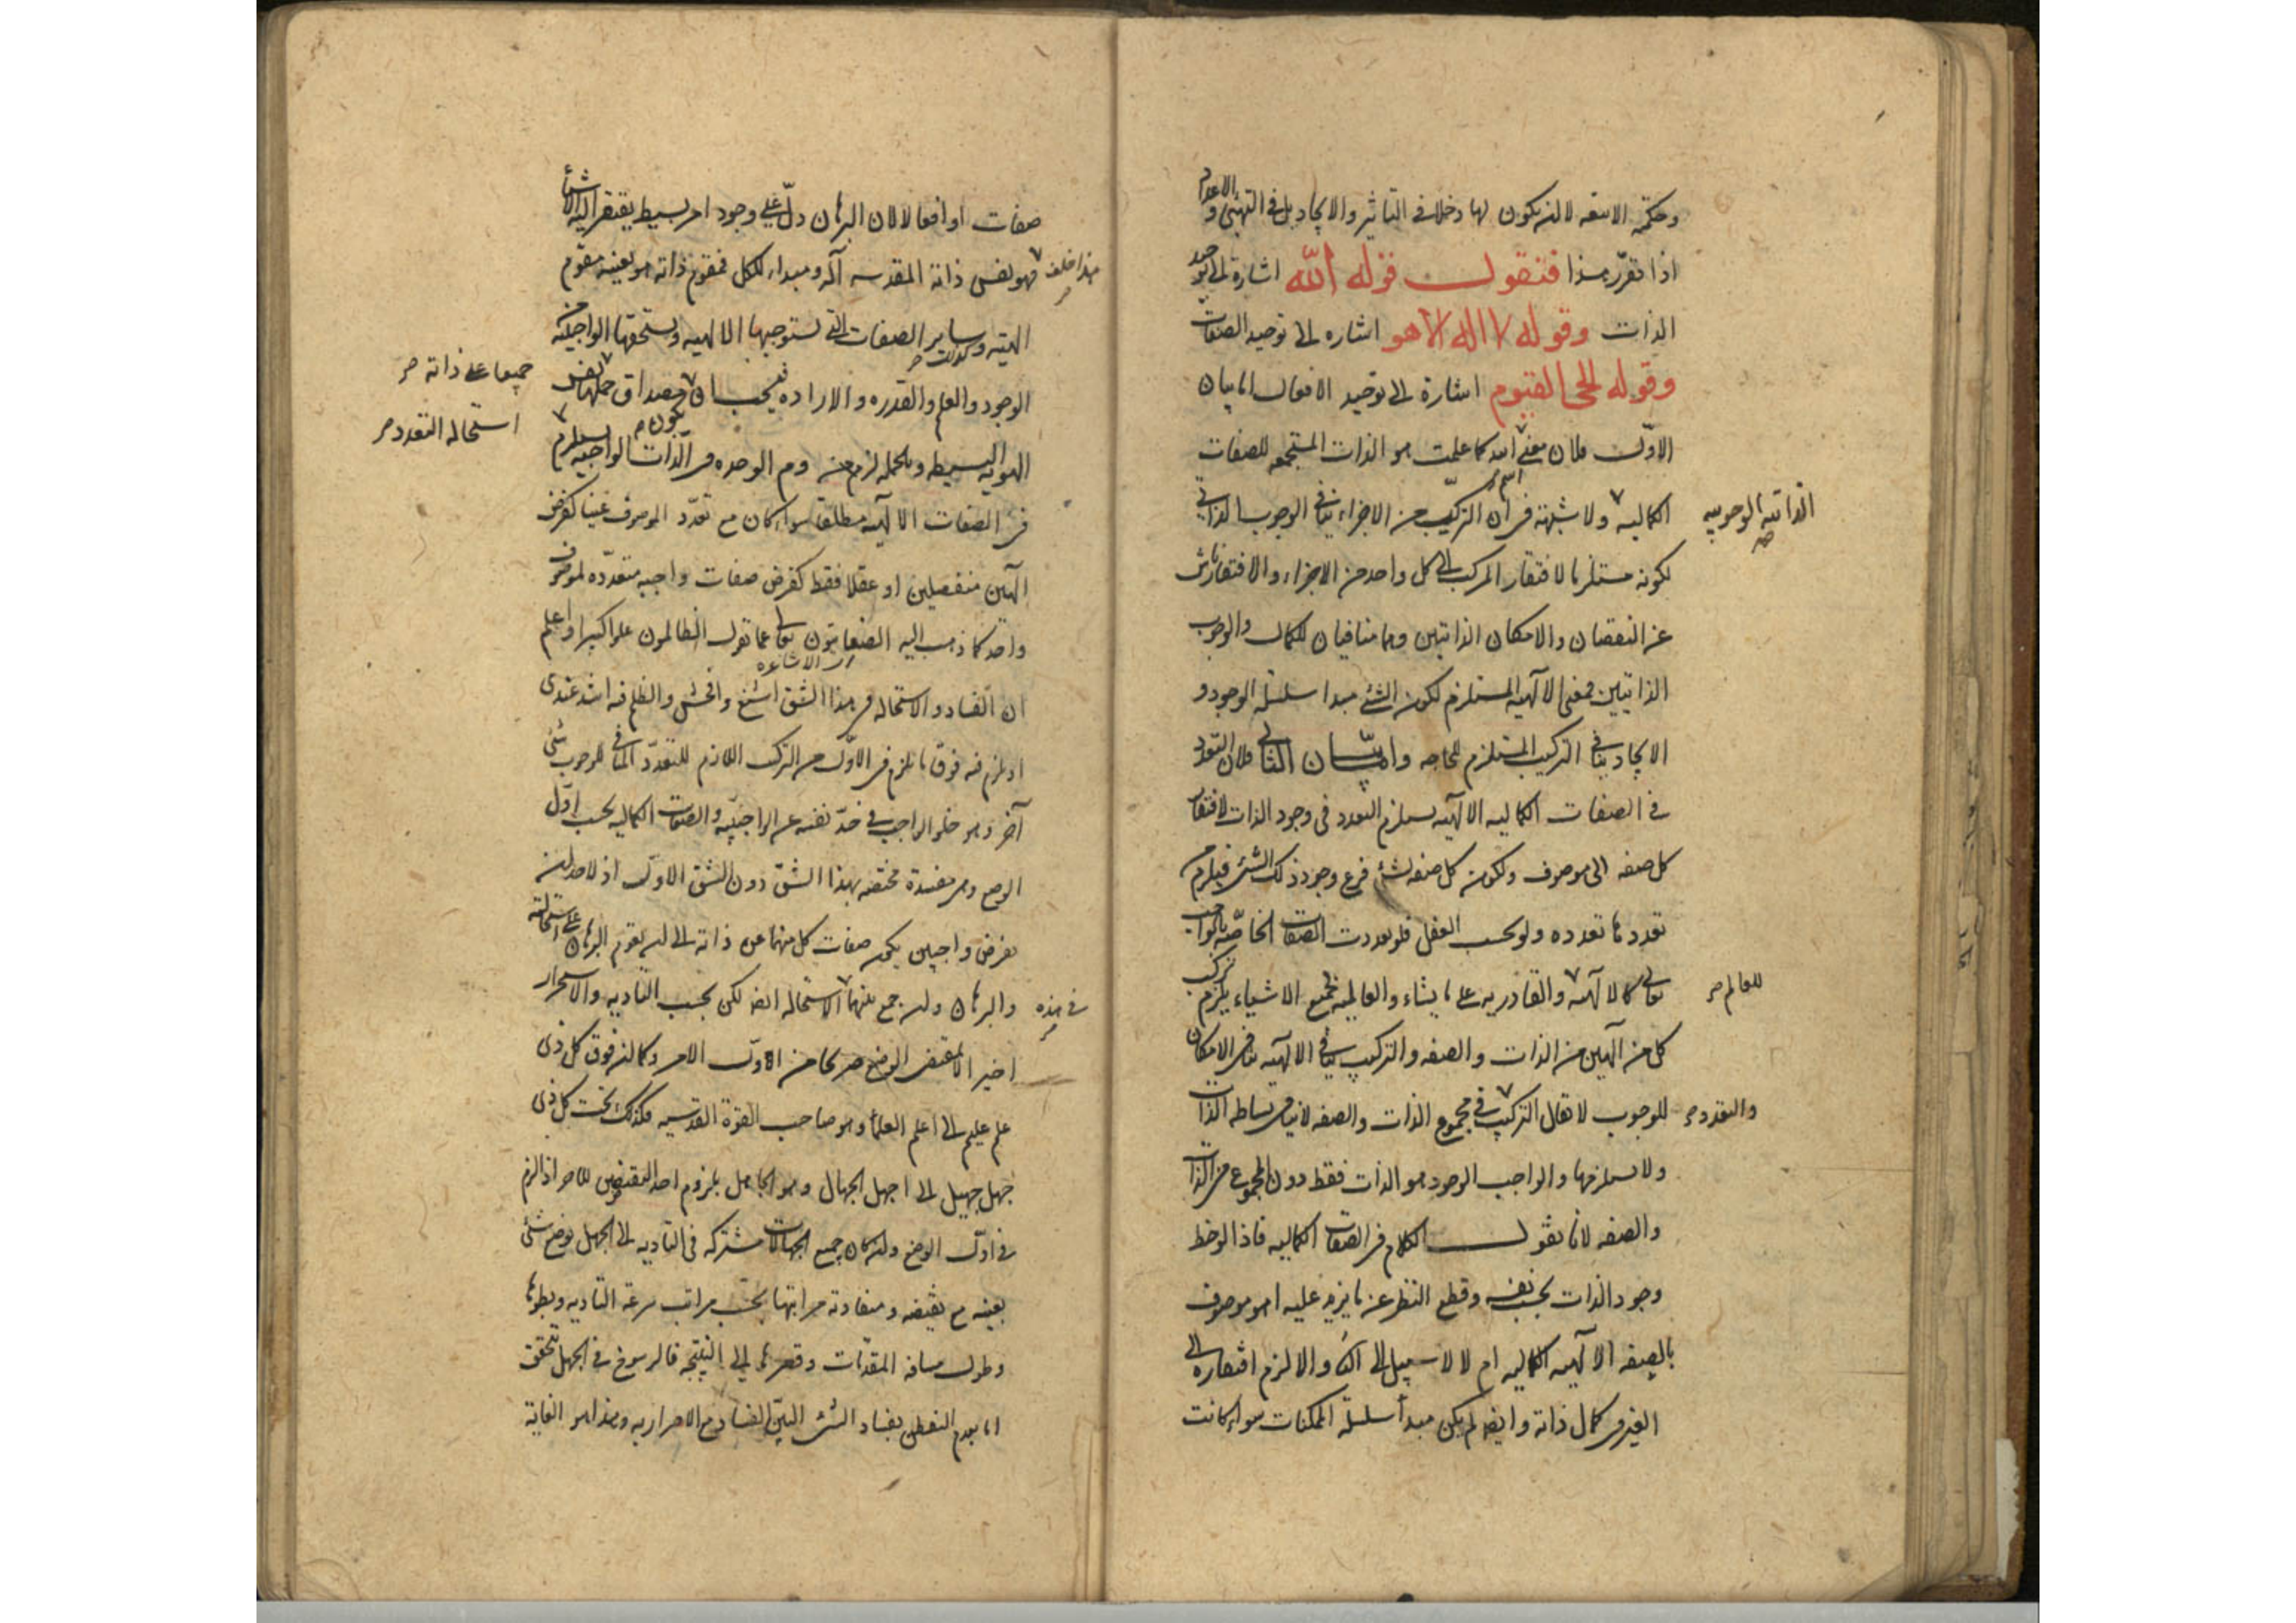 وحكمته الانيقه لا لان يكون لها دخلا فى التاثير والايجاد بل فى التهيئى و الاعداد
اذا تقرر هذا فنقول قوله الله اشارة الى توحيد
الذات وقوله لا اله الا هو اشاره الى توحيد الصفات
وقوله الحى القيوم اشارة الى توحيد الافعال اما بيان
الاول فلان معنى اسم الله كما علمت هو الذات المستجمعه للصفات
الكماليه الذاتيه الوجوبيه ولا شبهة فى ان التركيب من الاجزاء ينافى الوجوب الذاتى
لكونه مستلزما لافتقار المركب الى كل واحد من الاجزاء والافتقار ناش
عن النقصان والامكان الذاتيين وهما منافيان للكمال والوجوب
الذاتيين فمعنى الآلهيه المستلزم لكون الشئ مبدا سلسلة الوجود و
الايجاد ينافى التركيب المستلزم للحاجه واما بيان الثانى فلان التعدد
فى الصفات الكماليه الالهيه يستلزم التعدد فى وجود الذات لافتقار
كل صفه الى موصوف ولكون كل صفه لشئ فرع وجود ذلك الشئ فيلزم من
تعددها تعدده ولو بحسب العقل فلو تعددت الصفات الخاصه بالواجب
تعالى كالالهيه للعالم والقادريه على ما يشاء والعالميه بجميع الاشياء يلزم تركيب
كل من الهين من الذات والصفه والتركيب ينافى الالهيه منافى الامكان
للوجوب لا يقال التركيب والتعدد فى مجموع الذات والصفه لا ينافى بساطه الذات
ولا يستلزمها والواجب الوجود هو الذات فقط دون المجموع من الذات
والصفه لانا نقول الكلام فى الصفات الكماليه فاذا لوحظ
وجود الذات بحسب نفسه وقطع النظر عن ما يزيد عليه اهو موصوف
بالصفه الالهيه الكماليه ام لا لا سبيل الى الثانى والا لزم افتقاره الى
الغير فى كمال ذاته وايضا لم يكن مبدأ سلسلة الممكنات سواء كانت
صفات او افعالا لان البرهان دل على وجود امر بسيط يفتقر اليه الاشياء
هذا خلف فهو بنفس ذاته المقدسه اله ومبداء للكل فمقوم ذاته هو بعينه مقوم
الهيته وكذلك ساير الصفات التى يستوجبها الالهيه ويستحقها الواجبيه من
الوجود والعلم والقدره والاراده فيجب ان يكون مصداق حملها جميعا على ذاته نفس
الهويه البسيطه وبالجمله لزم من لزوم الوحده فى الذات الواجبيه استحاله التعدد
فى الصفات الالهيه مطلقا سواء كان مع تعدد الموصوف عينا كفرض
الهين منفصلين او عقلا فقط كفرض صفات واجبه متعدده لموصوف
واحد كما ذهب اليه الصفاتيون اى الاشاعره تعالى عما تقول الظالمون علوا كبيرا واعلم
ان الفساد والاستحاله فى هذا الشق اشنع وافحش والظلم فيه اشد عندى
اذ يلزم فيه فوق ما يلزم فى الاول من التركب اللازم للتعدد المنافى للوجوب شئ
آخر وهو خلو الواجب فى حد نفسه عن الواجبيه والصفات الكماليه بحسب اول
الوضع وهى مفسدة مختصه بهذا الشق دون الشق الاول اذ لاحد ان
يفرض واجبين يكون صفات كل منهما عين ذاته الى ان يقوم البرهان على استحالته
والبرهان وان جمع بينهما فى هذه الاستحاله ايضا لكن بحسب التاديه والاستجرار
اخيرا لا بمقتضى الوضع صريحا من اول الامر وكما ان فوق كل ذى
علم عليم الى اعلم العلماء وهو صاحب القوة القدسيه فكذلك تحت كل ذى
جهل جهيل الى اجهل الجهال وهو الجاهل بلزوم احد النقيضين للاخر اذا لزم
فى اول الوضع وان كان جميع الجهالات مشتركه فى التاديه الى الجهل بوضع شئ
بعينه مع نقيضه ومتفاوته مراتبها بحسب مراتب سرعة التاديه وبطوئها
وطول مسافه المقدمات وقصرها الى النتيجه فالرسوخ فى الجهل يتحقق
اما بعدم التفطن بفساد الشئ البين الفساد مع الاصرار به وهذا هو الغاية